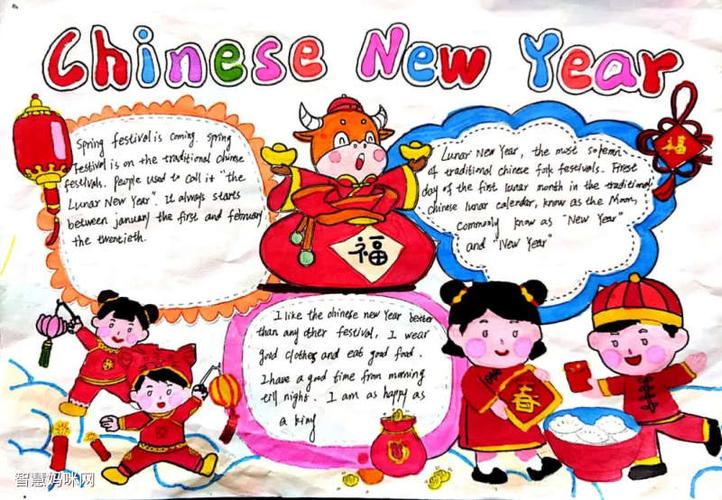 Chinese New Year
Spring festival is coming. Spring
festival is on the traditional chinese
festivals. People used to call it "the
Lunar New Year". It always starts
between january the first and february
the twentieth.
福
Lunar New Year, the most solemn
of traditional chinese folk festivals. First
day of the first lunar month in the traditional
chinese lunar calendar, know as the Moon,
commonly know as "New Year"
and "New Year"
福
I like the chinese new Year better
than any other festival, I wear
good clothes and eat good food.
I have a good time from morning
till night. I am as happy as
a king
春
智慧妈咪网